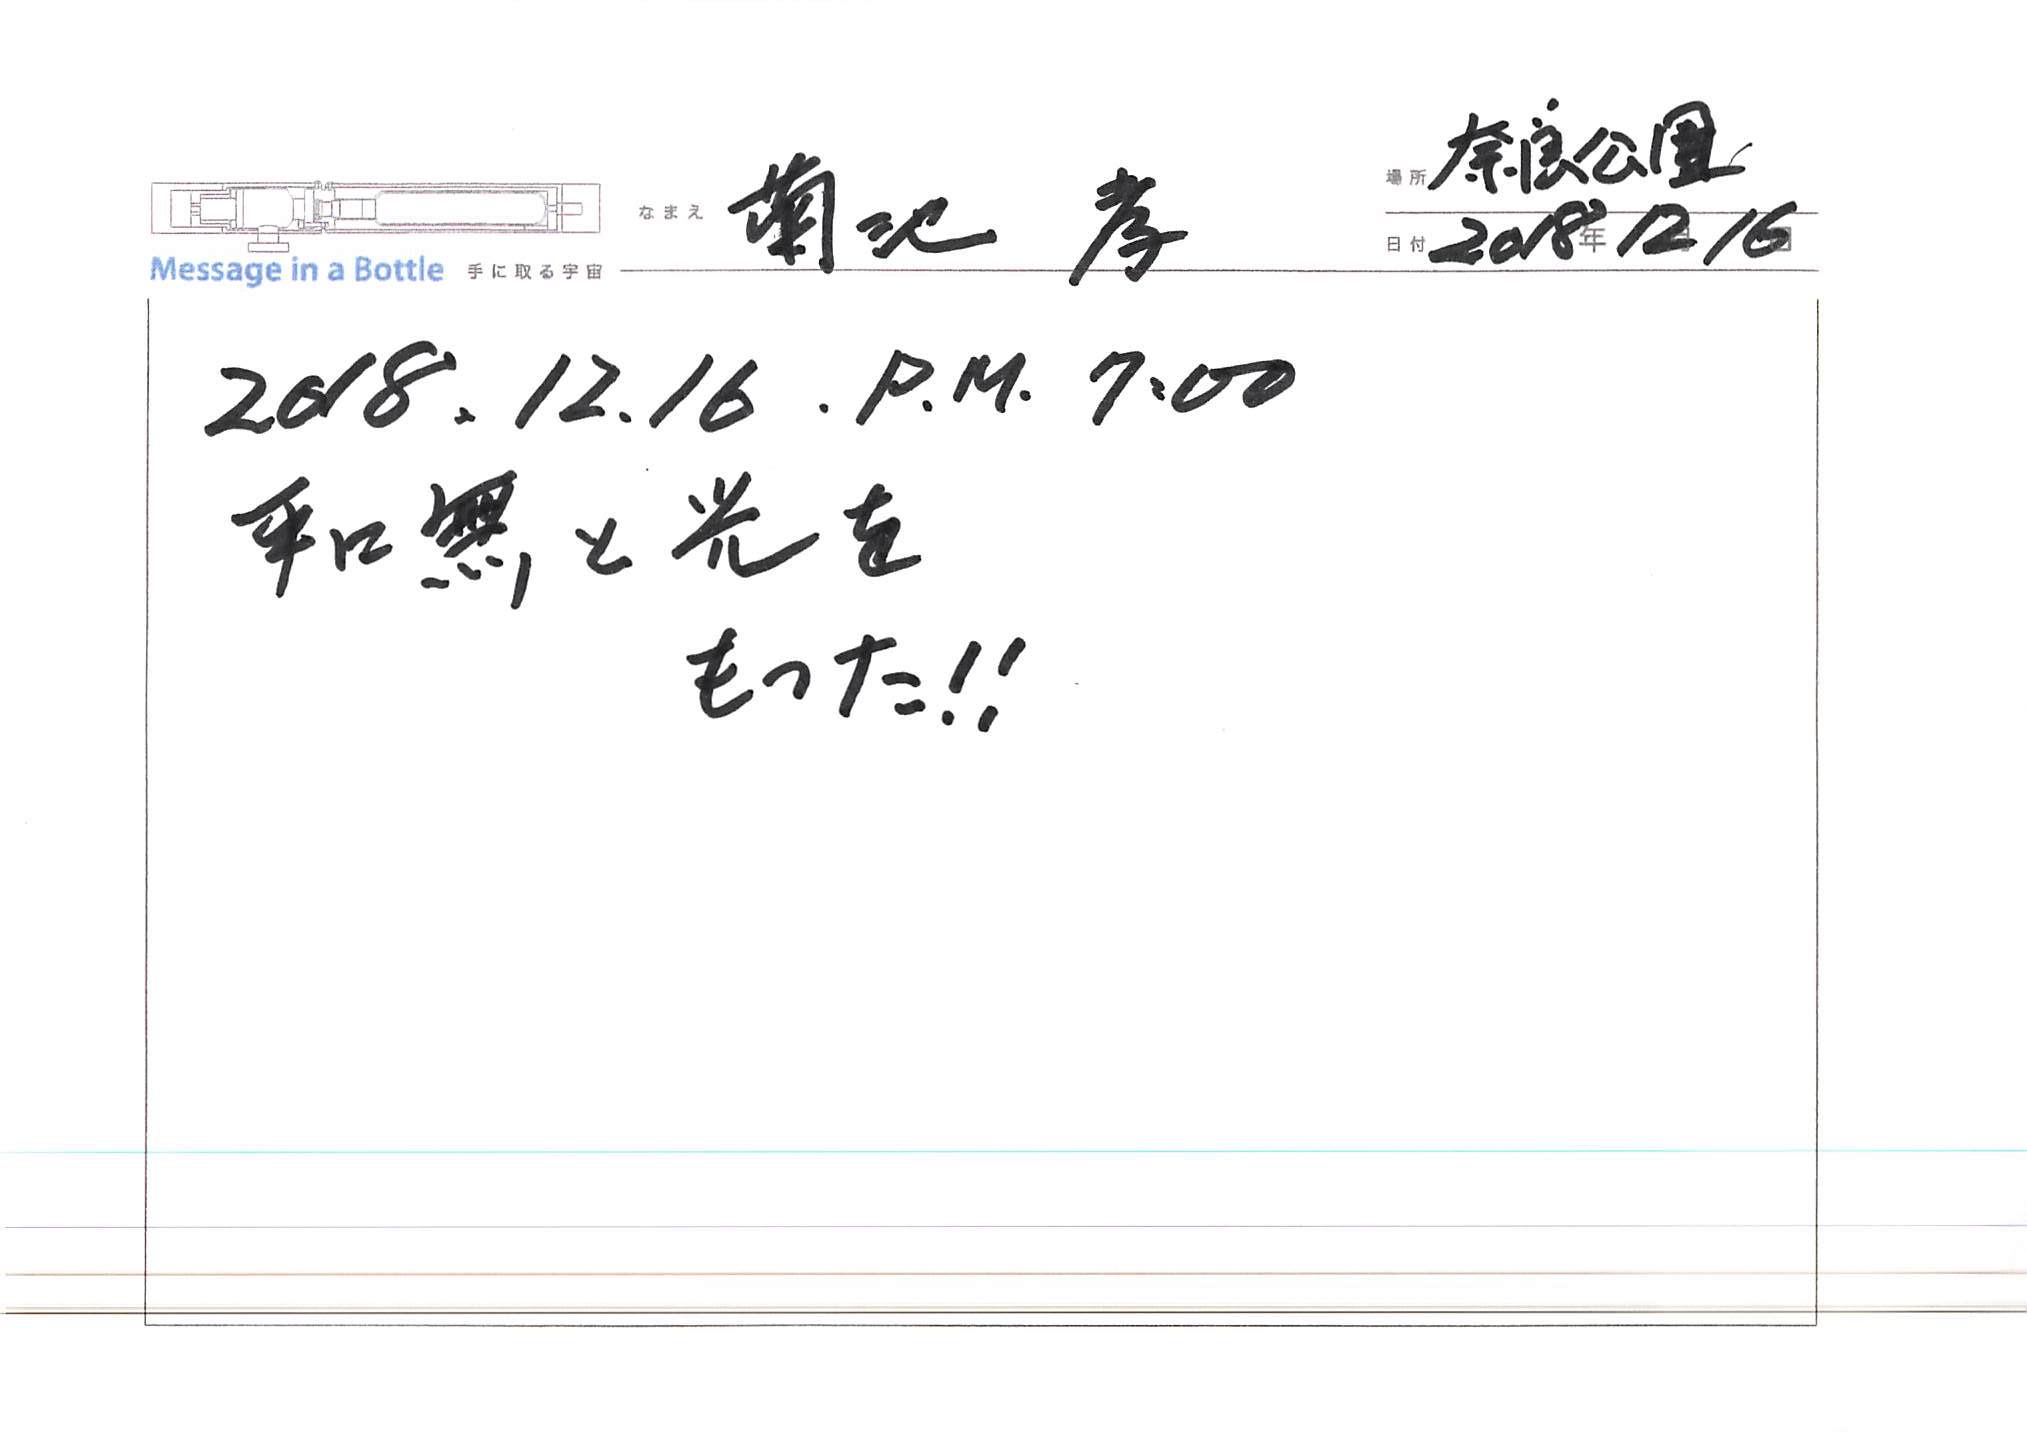 場所 奈良公園
なまえ 菊池 孝
日付 2018年 12 16
Message in a Bottle 手に取る宇宙
2018.12.16.P.M.7:00
手に無と光を
もった!!